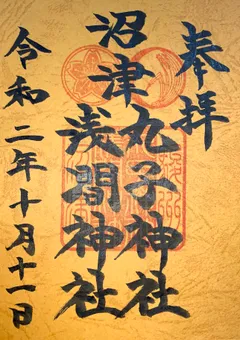 奉拝
沼津
丸子神社
浅間神社
令和二年十月十一日